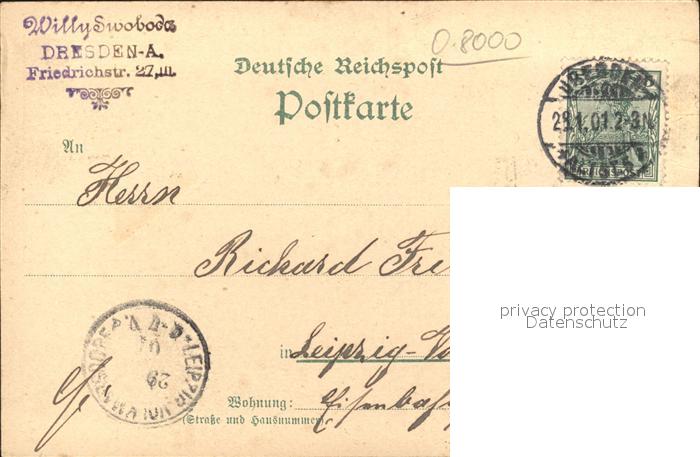 Willy Swoboda
DRESDEN-A.
Friedrichstr. 27, III.
0.8000
Deutsche Reichspost
Postkarte
DRESDEN
28.1.01. 2-3N
An
Herrn
Richard Fre
privacy protection
Datenschutz
in Leipzig-Vo
LEIPZIG
29
01
Wohnung: Eisenbah
(Straße und Hausnummer)